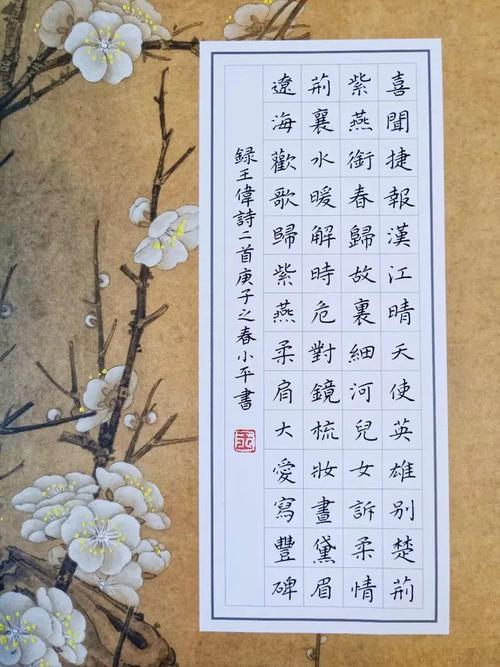 喜聞捷報漢江晴天使英雄别楚荊
紫燕銜春歸故裏細河兒女訴柔情
荊襄水暖解時危對鏡梳妝畫黛眉
遼海歡歌歸紫燕柔肩大愛寫豐碑
録王偉詩二首庚子之春小平書